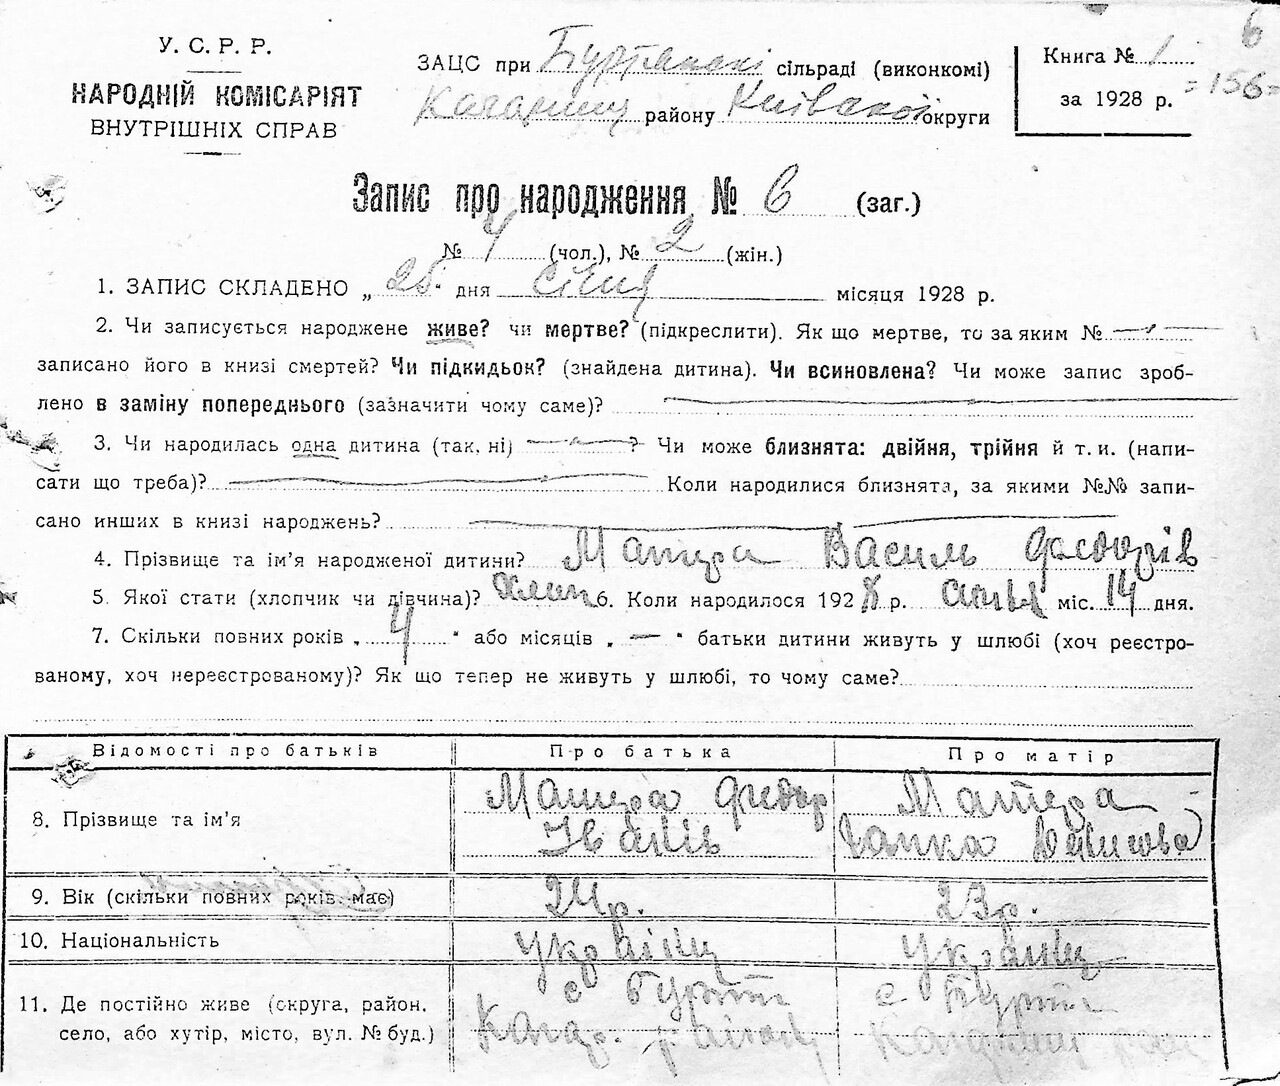 6
У. С. Р. Р.
НАРОДНІЙ КОМІСАРІЯТ
ВНУТРІШНІХ СПРАВ
ЗАЦС при Буртянські сільраді (виконкомі)
району Київської округи
Книга № 1
за 1928 р.
= 156 =
Запис про народження № 6 (заг.)
№ 4 (чол.), № 2 (жін.)
1. ЗАПИС СКЛАДЕНО „ 25 " дня січня місяця 1928 р.
2. Чи записується народжене живе? чи мертве? (підкреслити). Як що мертве, то за яким №
записано його в книзі смертей? Чи підкидьок? (знайдена дитина). Чи всиновлена? Чи може запис зроб-
лено в заміну попереднього (зазначити чому саме)?
3. Чи народилась одна дитина (так, ні) ? Чи може близнята: двійня, трійня й т. и. (напи-
сати що треба)? Коли народилися близнята, за якими №№ запи-
сано инших в книзі народжень?
4. Прізвище та ім'я народженої дитини? Мацера Василь Федорів
5. Якої стати (хлопчик чи дівчина)? Хлоп 6. Коли народилося 1928 р. міс. 14 дня.
7. Скільки повних років „ 4 " або місяців „ — " батьки дитини живуть у шлюбі (хоч реєстро-
ваному, хоч нереєстрованому)? Як що тепер не живуть у шлюбі, то чому саме?
Відомості про батьків Про батька Про матір
8. Прізвище та ім'я Мацера Федір Мацера
Іванів Ганка Денисова
9. Вік (скільки повних років має) 24 р. 23 р.
10. Національність Українц Українц
11. Де постійно живе (округа, район, с Бурти с Бурти
село, або хутір, місто, вул. № буд.) району